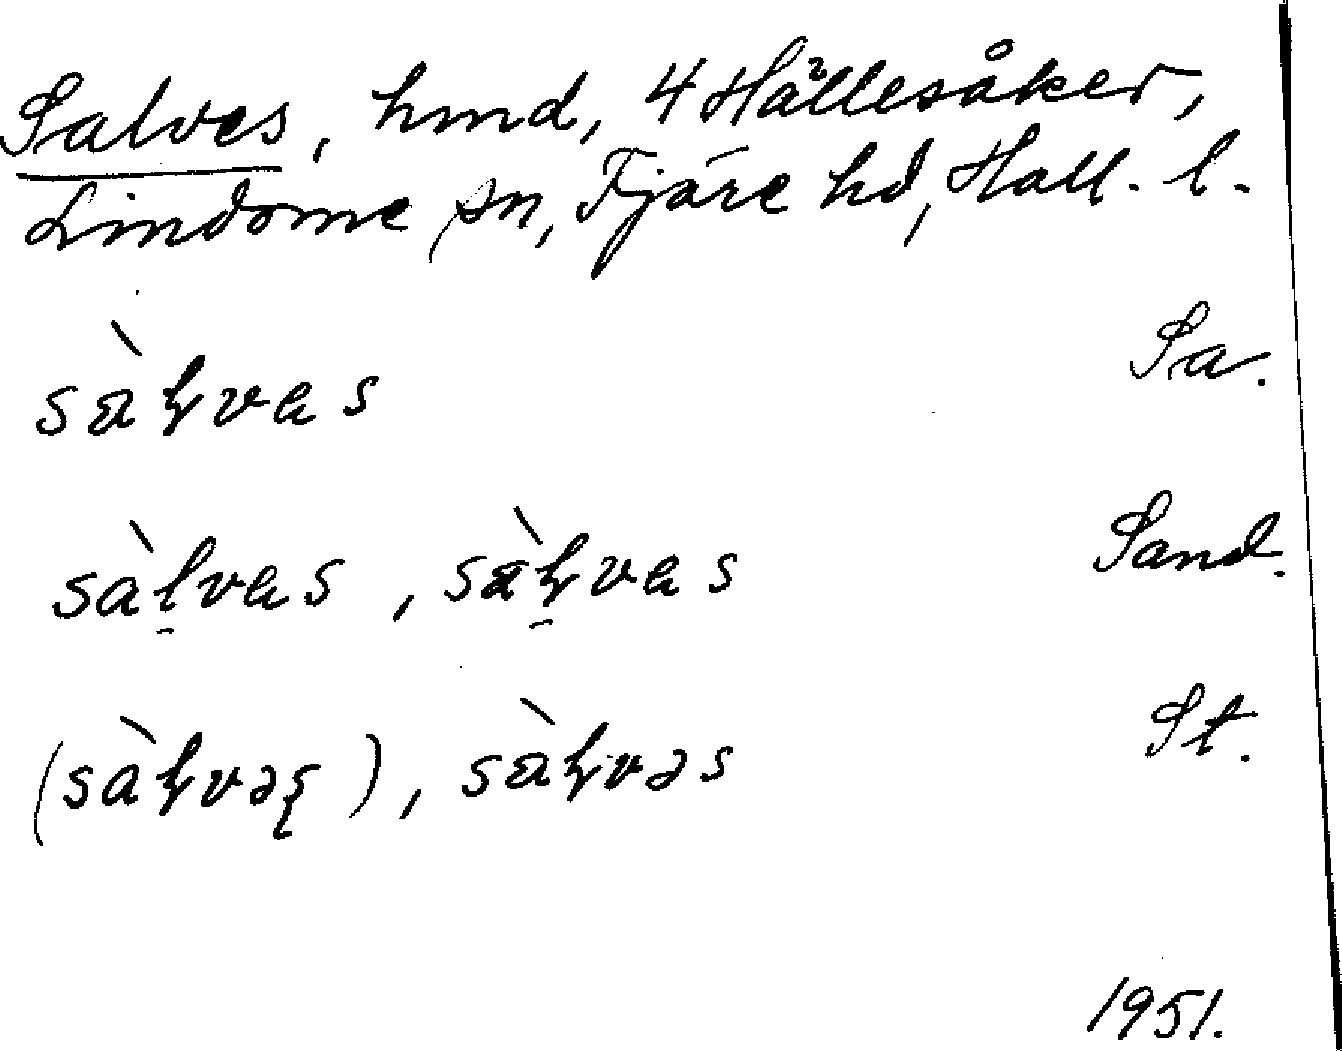 Salves, hmd, 4 Hällesåker,
Lindome sn, Fjäre hd, Hall. l.
sàꞎvas Sa.
sàl̠vas, sàꞎ̠vas Sand.
(sàꞎvəş), sàꞎvəs St.
1951.